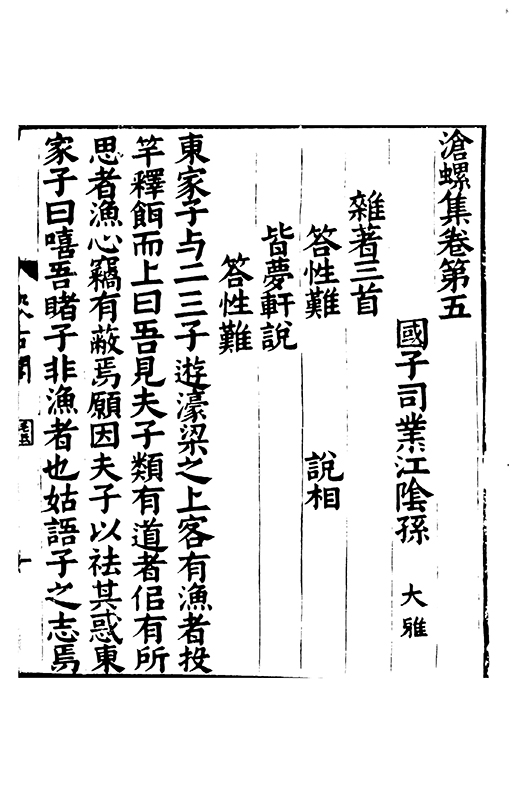 滄螺集卷第五
國子司業江陰孫　大雅
雜著三首
答性難　說相
皆夢軒說
答性難
東家子与二三子遊濠梁之上客有漁者投
竿釋餌而上曰吾見夫子類有道者侣有所
思者漁心竊有蔽焉願因夫子以祛其惑東
家子曰嘻吾睹子非漁者也姑語子之志焉